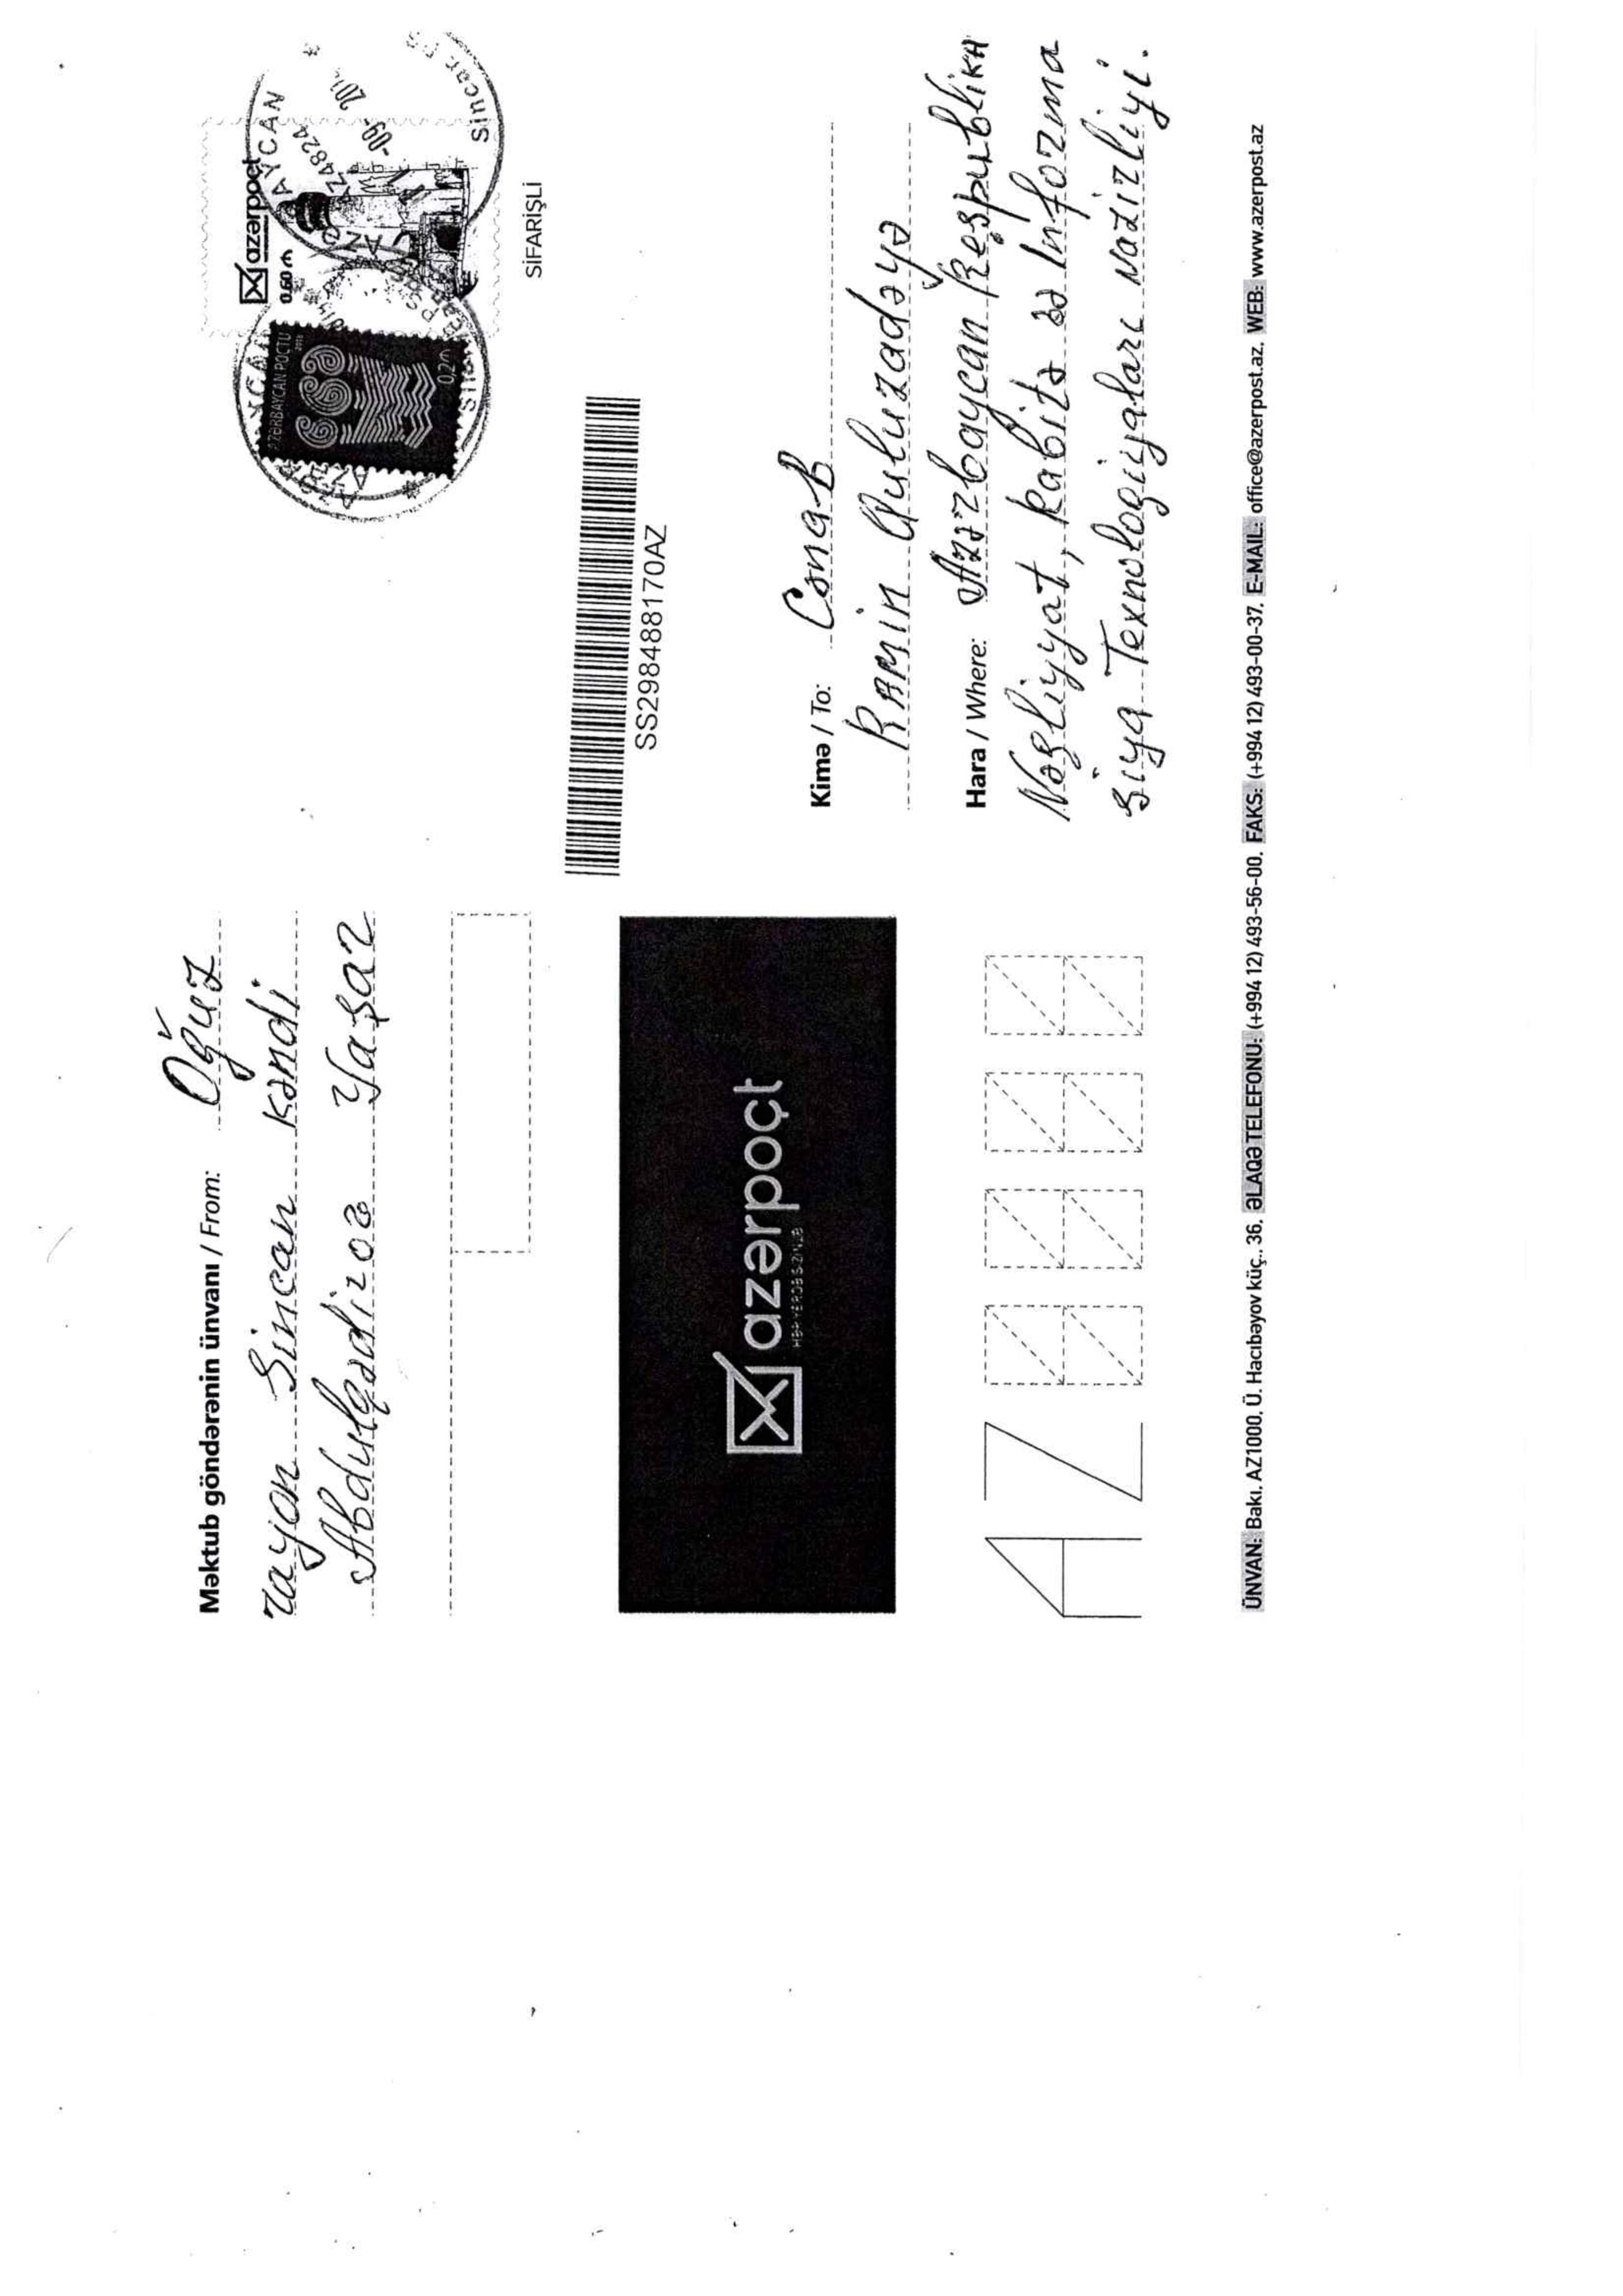 Məktub göndərənin ünvanı / From: Oğuz
rayon Sincan kəndi
Abdulqədirov Yaşar
azərpoçt
0.60 ₼
AZƏRBAYCAN POÇTU
2018
0,20
AYCAN
AZ4824
-09-
Sincan
SİFARİŞLİ
SS298488170AZ
azərpoçt
HƏR YERDƏ SİZİNLƏ
Kimə / To: Cənab
Ramin Quluzadəyə
Hara / Where: Azərbaycan Respublika
Nəqliyyat, Rabitə və İnforma
siya Texnologiyaları Nazirliyi.
AZ
ÜNVAN: Bakı, AZ1000, Ü. Hacıbəyov küç., 36, ƏLAQƏ TELEFONU: (+994 12) 493-56-00, FAKS: (+994 12) 493-00-37, E-MAIL: office@azerpost.az, WEB: www.azerpost.az